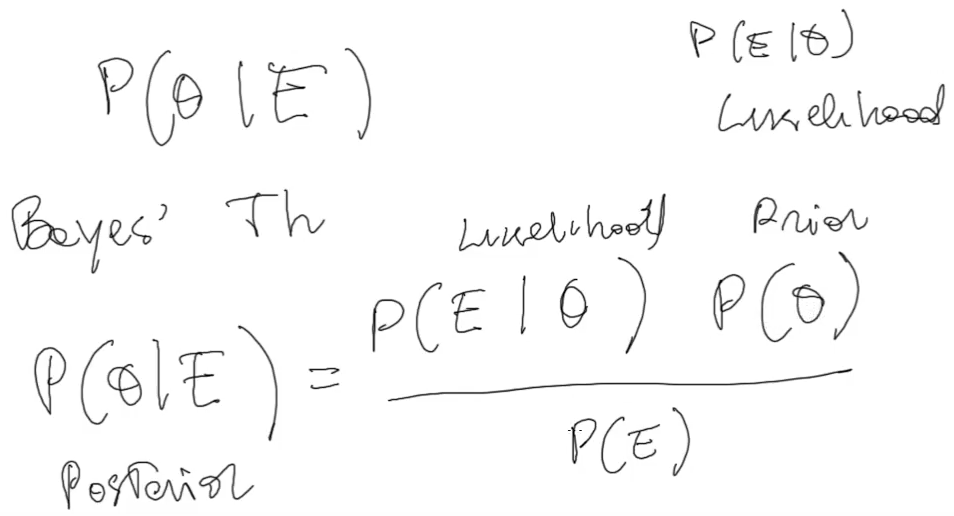 P(θ|E)
P(E|θ)
Likelihood
Bayes' Th
Likelihood Prior
P(θ|E) = P(E|θ) P(θ)
P(E)
Posterior